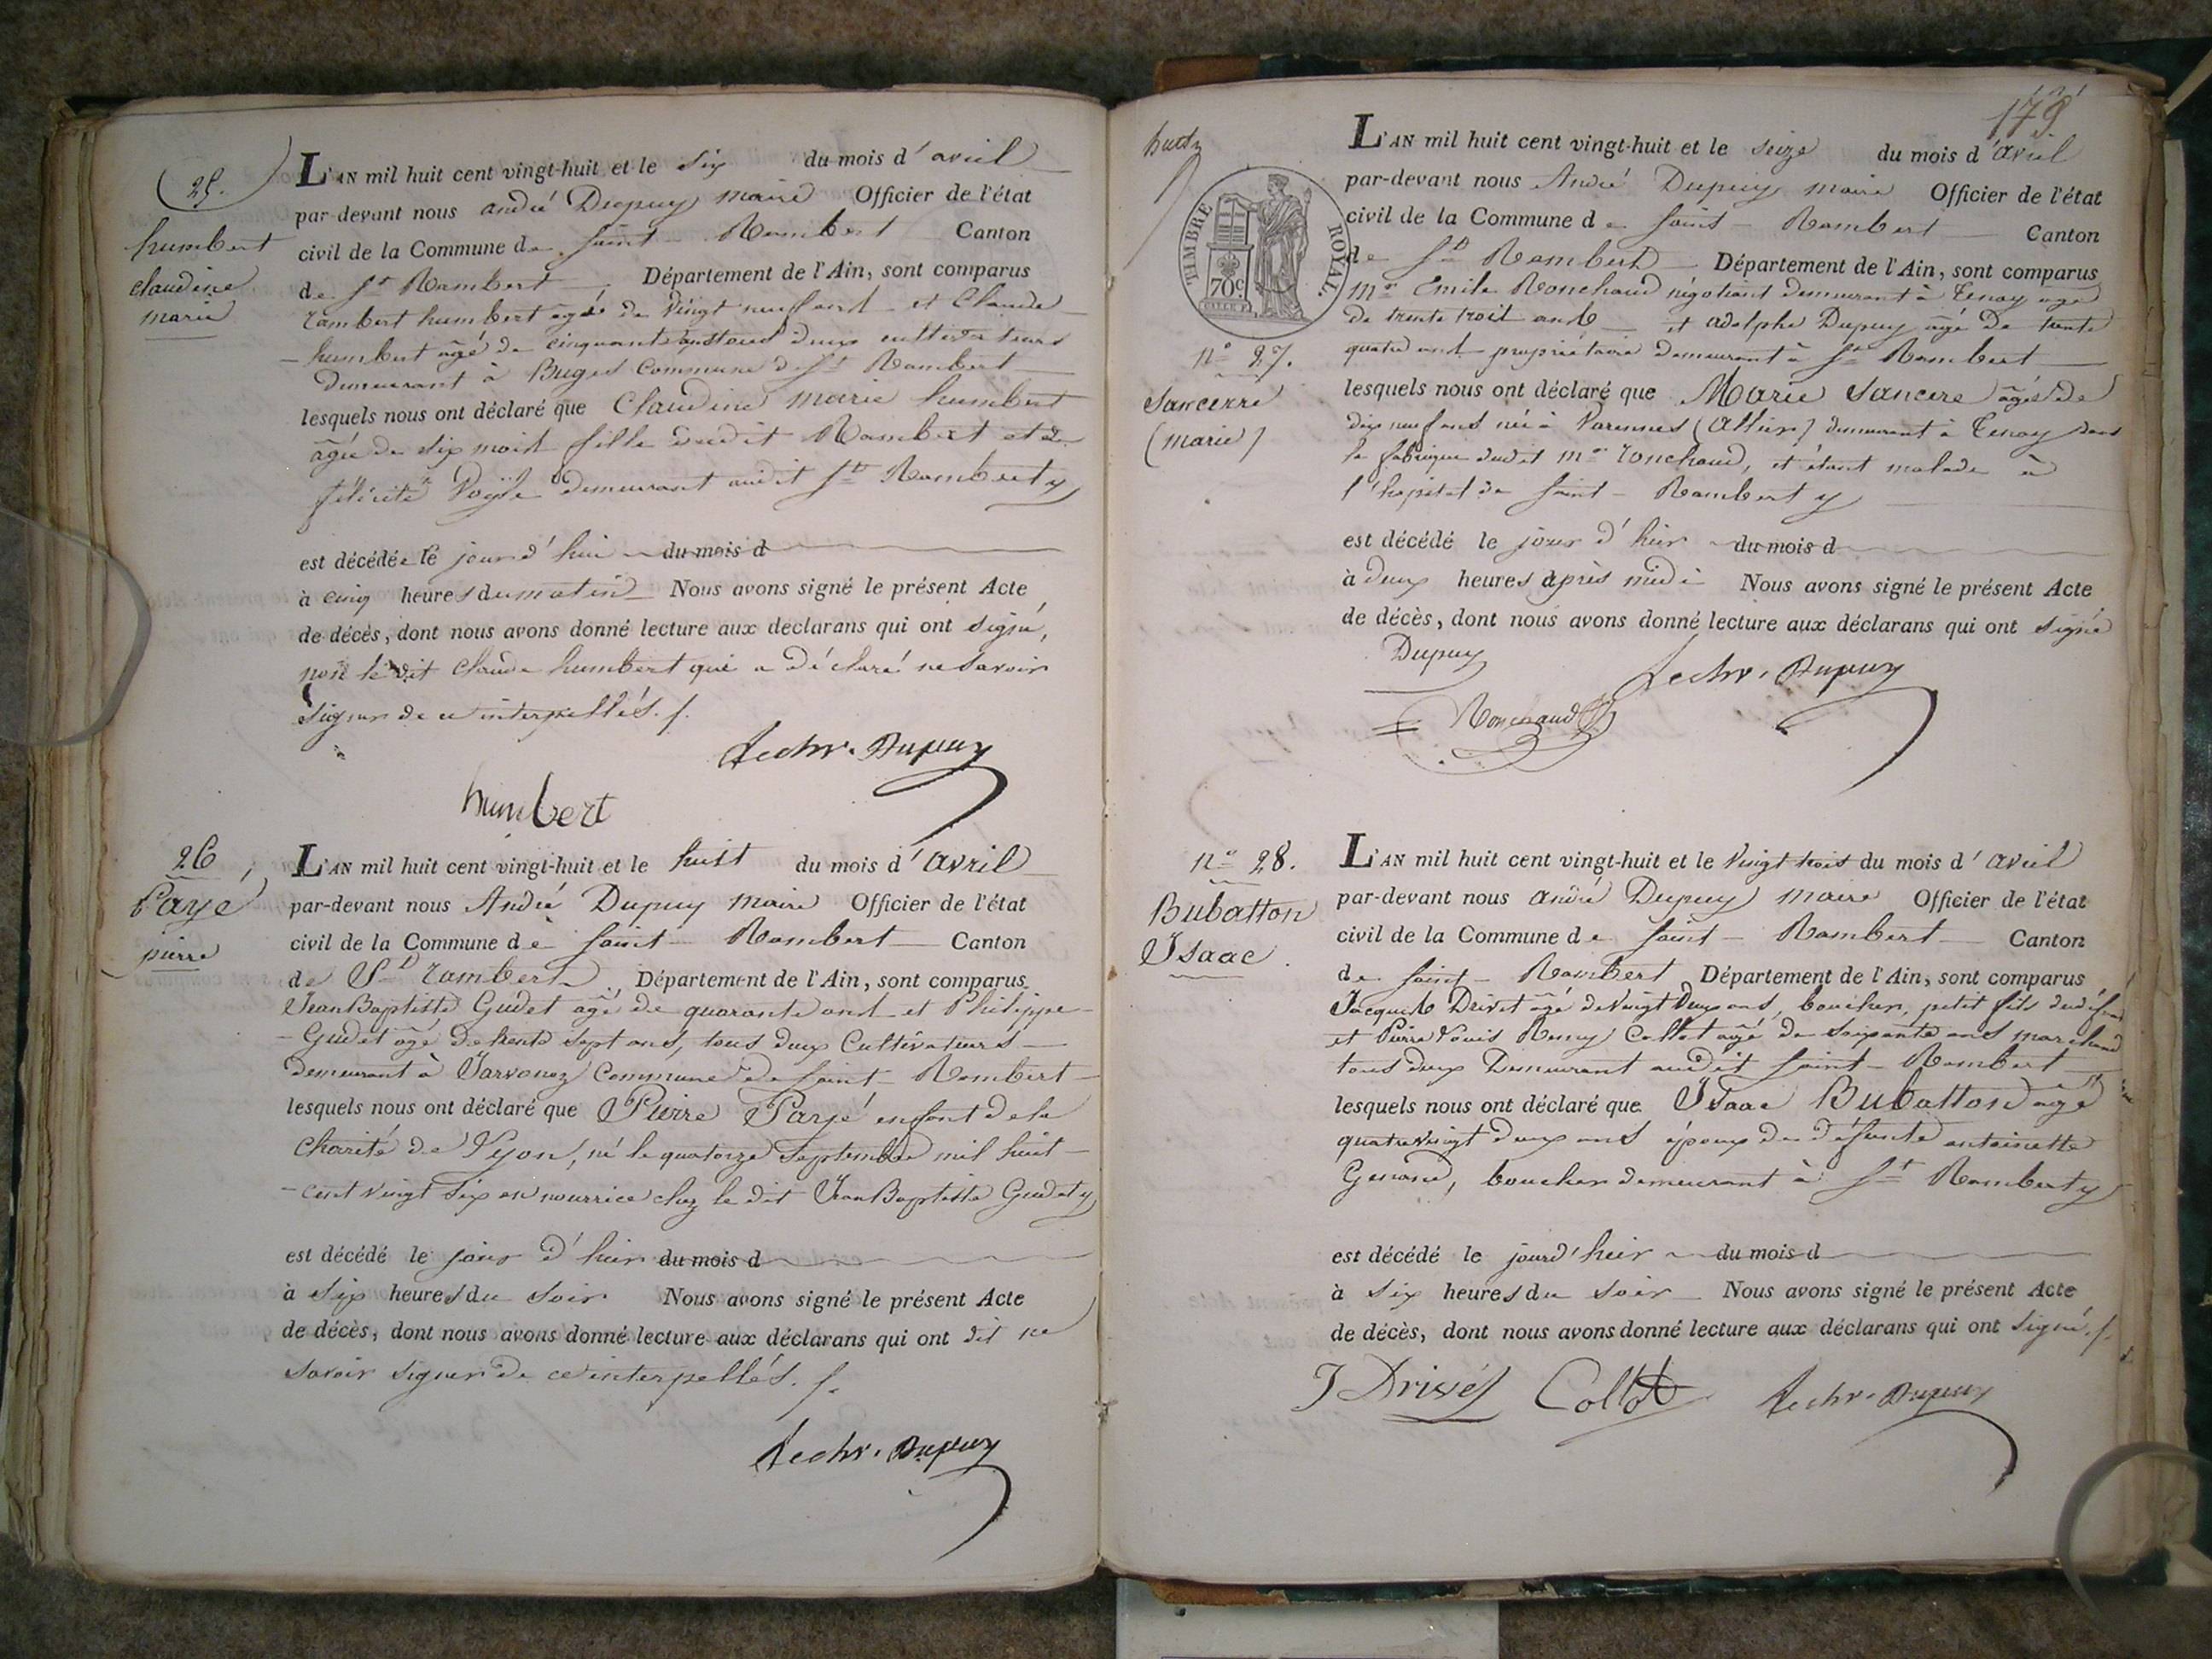 (25.)
humbert
claudine
marie
L'AN mil huit cent vingt-huit et le six du mois d'avril
par-devant nous andré Dupuy maire Officier de l'état
civil de la Commune de Saint - Rambert Canton
de St Rambert Département de l'Ain, sont comparus
rambert humbert agé de vingt neuf ans et Claude
humbert agé de cinquante ans tous deux cultivateurs
demeurant à Buges Commune de St Rambert
lesquels nous ont déclaré que Claudine marie humbert
âgée de six mois fille dudit Rambert et de
félicité demeurant audit St Rambert
est décédée le jourd'hui du mois d
à cinq heures du matin Nous avons signé le présent Acte
de décès, dont nous avons donné lecture aux déclarans qui ont signé,
non le dit claude humbert qui a déclaré ne savoir
signer de ce interpellés.
Dupuy
humbert
26
Payé
pierre
L'AN mil huit cent vingt-huit et le huit du mois d'avril
par-devant nous André Dupuy maire Officier de l'état
civil de la Commune de Saint - Rambert Canton
de St rambert Département de l'Ain, sont comparus
Jean Baptiste Gudet agé de quarante ans et Philippe
Gudet âgé de trente sept ans, tous deux Cultivateurs
demeurant à Javornoz Commune de Saint - Rambert
lesquels nous ont déclaré que Pierre Payé enfant de la
charité de Lyon, né le quatorze Septembre mil huit
cent vingt six en nourrice chez le dit Jean Baptiste Gudet
est décédé le jour d'hier du mois d
à six heures du soir Nous avons signé le présent Acte
de décès, dont nous avons donné lecture aux déclarans qui ont dit ne
savoir signer de ce interpellés.
Dupuy
179
TIMBRE ROYAL.
70c
n° 27.
Sancerre
(marie)
L'AN mil huit cent vingt-huit et le seize du mois d'avril
par-devant nous André Dupuy maire Officier de l'état
civil de la Commune de Saint - Rambert Canton
de St Rambert Département de l'Ain, sont comparus
Mr Emile Ronchaud négotiant demeurant à Tenay agé
de trente trois ans et adolphe Dupuy âgé de trente
quatre ans propriétaire demeurant à St Rambert
lesquels nous ont déclaré que Marie Sancere âgée de
dix neuf ans née à Varennes (Allier) demeurant à Tenay dans
la fabrique dudit Mr ronchaud, et étant malade à
l'hopital de Saint - Rambert
est décédé le jour d'hier du mois d
à deux heures après midi Nous avons signé le présent Acte
de décès, dont nous avons donné lecture aux déclarans qui ont signé
Dupuy
Dupuy
Ronchaud
n° 28.
Bubatton
Isaac
L'AN mil huit cent vingt-huit et le vingt trois du mois d'avril
par-devant nous andré Dupuy maire Officier de l'état
civil de la Commune de Saint - Rambert Canton
de Saint - Rambert Département de l'Ain, sont comparus
Jacques Drivet agé de vingt deux ans, boucher, petit fils du défunt
et Pierre Louis Remy Collet agé de soixante ans marchand
tous deux Demeurant audit Saint - Rambert
lesquels nous ont déclaré que Isaac Bubatton agé
quatre vingt deux ans époux de défunte antoinette
boucher demeurant à St Rambert
est décédé le jourd'hier du mois d
à six heures du soir Nous avons signé le présent Acte
de décès, dont nous avons donné lecture aux déclarans qui ont signé.
J Drivet Collot Dupuy